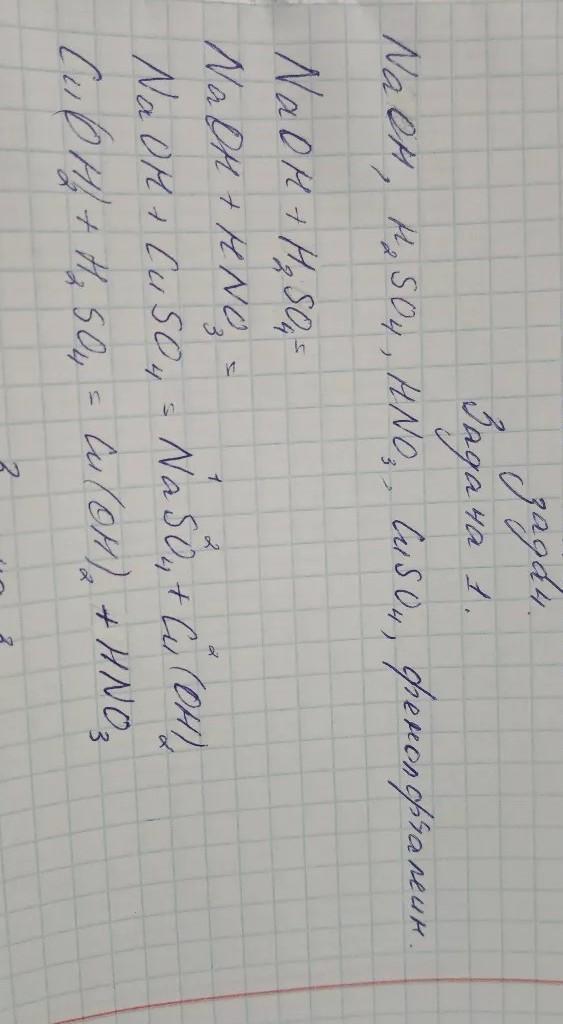 задач.
Задача 1.
NaOH, H₂SO₄, HNO₃, CuSO₄, фенолфталеин.
NaOH + H₂SO₄ =
NaOH + HNO₃ =
NaOH + CuSO₄ = Na¹SO₄² + Cu²(OH)₂
Cu(OH)₂ + H₂SO₄ = Cu(OH)₂ + HNO₃